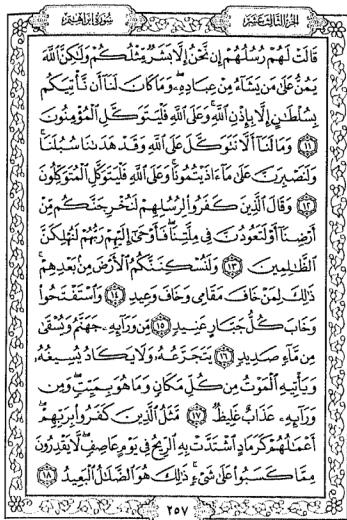 الجزء الثالث عشر
سورة إبراهيم
قَالَتْ لَهُمْ رُسُلُهُمْ إِن نَّحْنُ إِلَّا بَشَرٌ مِّثْلُكُمْ وَلَٰكِنَّ ٱللَّهَ
يَمُنُّ عَلَىٰ مَن يَشَآءُ مِنْ عِبَادِهِۦ ۖ وَمَا كَانَ لَنَآ أَن نَّأْتِيَكُم
بِسُلْطَٰنٍ إِلَّا بِإِذْنِ ٱللَّهِ ۚ وَعَلَى ٱللَّهِ فَلْيَتَوَكَّلِ ٱلْمُؤْمِنُونَ
١١ وَمَا لَنَآ أَلَّا نَتَوَكَّلَ عَلَى ٱللَّهِ وَقَدْ هَدَىٰنَا سُبُلَنَا ۚ
وَلَنَصْبِرَنَّ عَلَىٰ مَآ ءَاذَيْتُمُونَا ۚ وَعَلَى ٱللَّهِ فَلْيَتَوَكَّلِ ٱلْمُتَوَكِّلُونَ
١٢ وَقَالَ ٱلَّذِينَ كَفَرُوا۟ لِرُسُلِهِمْ لَنُخْرِجَنَّكُم مِّنْ
أَرْضِنَآ أَوْ لَتَعُودُنَّ فِى مِلَّتِنَا ۖ فَأَوْحَىٰٓ إِلَيْهِمْ رَبُّهُمْ لَنُهْلِكَنَّ
ٱلظَّٰلِمِينَ ١٣ وَلَنُسْكِنَنَّكُمُ ٱلْأَرْضَ مِنۢ بَعْدِهِمْ ۚ
ذَٰلِكَ لِمَنْ خَافَ مَقَامِى وَخَافَ وَعِيدِ ١٤ وَٱسْتَفْتَحُوا۟
وَخَابَ كُلُّ جَبَّارٍ عَنِيدٍ ١٥ مِّن وَرَآئِهِۦ جَهَنَّمُ وَيُسْقَىٰ
مِن مَّآءٍ صَدِيدٍ ١٦ يَتَجَرَّعُهُۥ وَلَا يَكَادُ يُسِيغُهُۥ
وَيَأْتِيهِ ٱلْمَوْتُ مِن كُلِّ مَكَانٍ وَمَا هُوَ بِمَيِّتٍ ۖ وَمِن
وَرَآئِهِۦ عَذَابٌ غَلِيظٌ ١٧ مَّثَلُ ٱلَّذِينَ كَفَرُوا۟ بِرَبِّهِمْ ۖ
أَعْمَٰلُهُمْ كَرَمَادٍ ٱشْتَدَّتْ بِهِ ٱلرِّيحُ فِى يَوْمٍ عَاصِفٍ ۖ لَّا يَقْدِرُونَ
مِمَّا كَسَبُوا۟ عَلَىٰ شَىْءٍ ۚ ذَٰلِكَ هُوَ ٱلضَّلَٰلُ ٱلْبَعِيدُ ١٨
٢٥٧